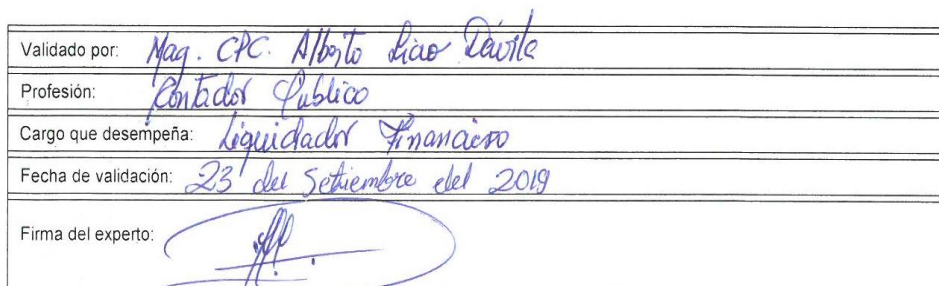 Validado por: Mag. CPC. Alberto Liao Dávila
Profesión: Contador Publico
Cargo que desempeña: Liquidador Financiero
Fecha de validación: 23 del Setiembre del 2019
Firma del experto: